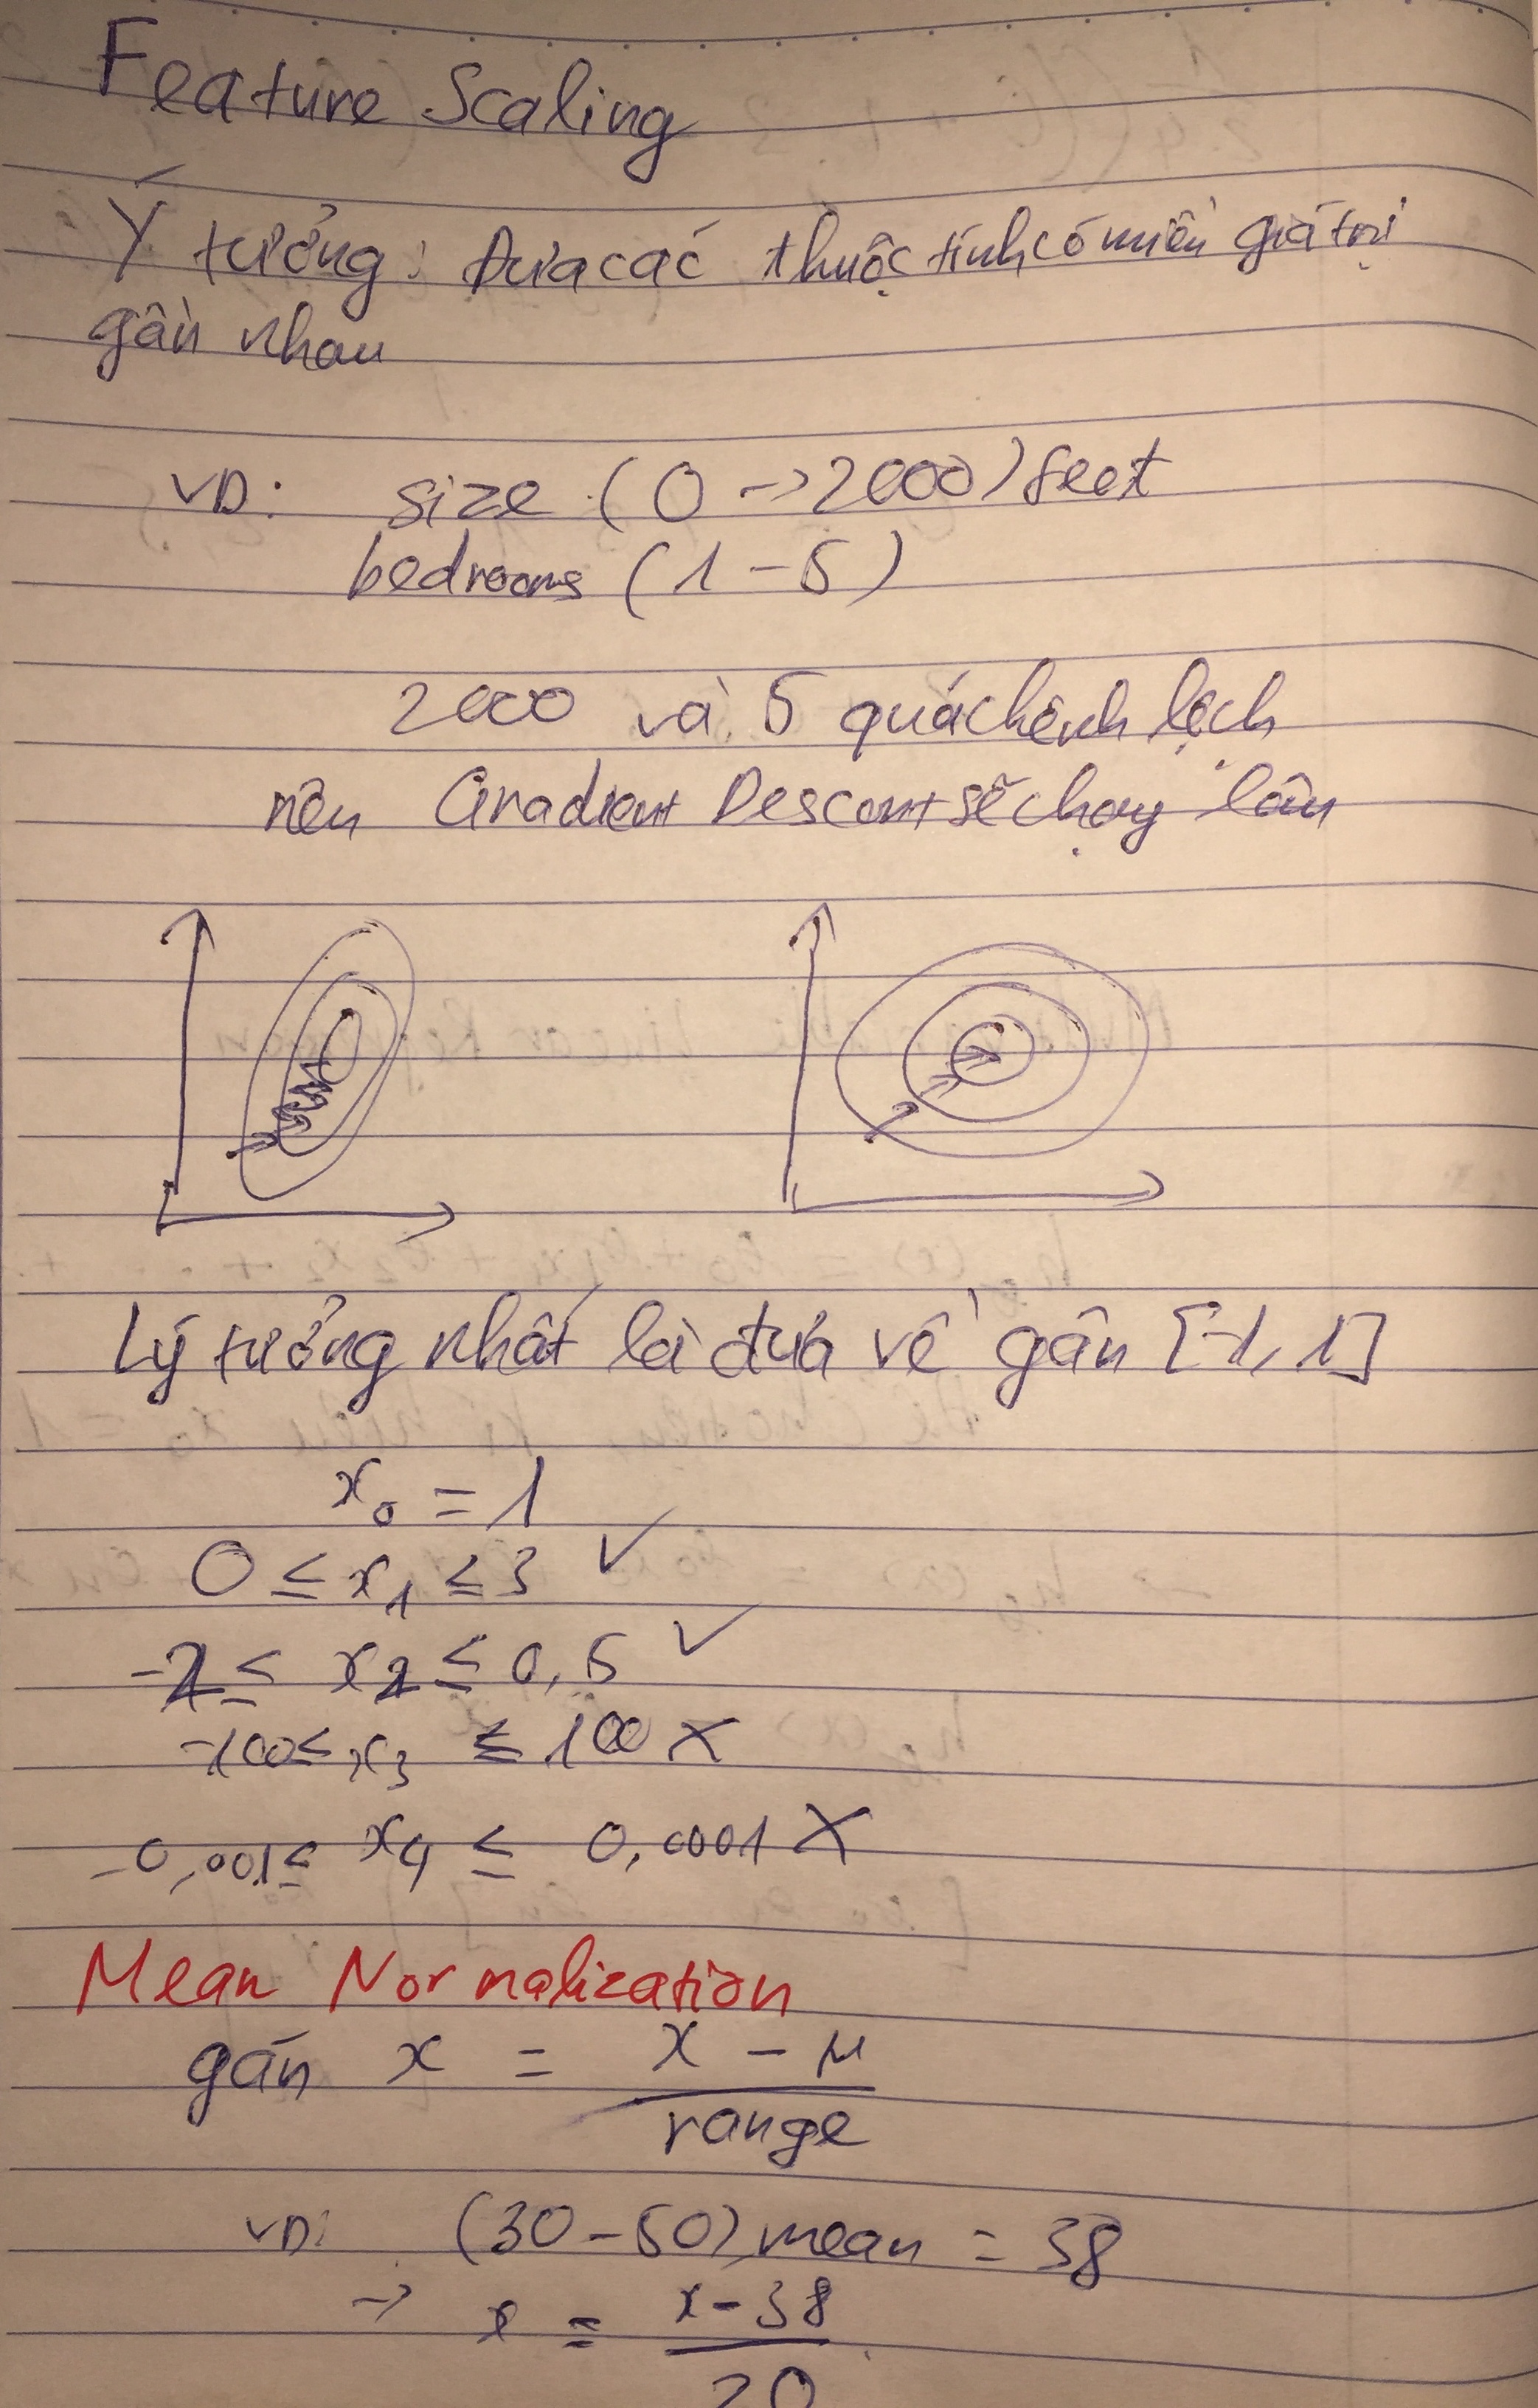 Feature Scaling
Ý tưởng: Đưa các thuộc tính có miền giá trị
gần nhau
VD: size (0 -> 2000) feet
bedrooms (1 - 5)
2000 và 5 quá chênh lệch
nên Gradient Descent sẽ chạy lâu
Lý tưởng nhất là đưa về gần [-1, 1]
x₀ = 1
0 ≤ x₁ ≤ 3 ✓
-2 ≤ x₂ ≤ 0,5 ✓
-100 ≤ x₃ ≤ 100 X
-0,001 ≤ x₄ ≤ 0,0001 X
Mean Normalization
gán x = x - μ
range
VD: (30 - 50) mean = 38
-> x = x - 38
20